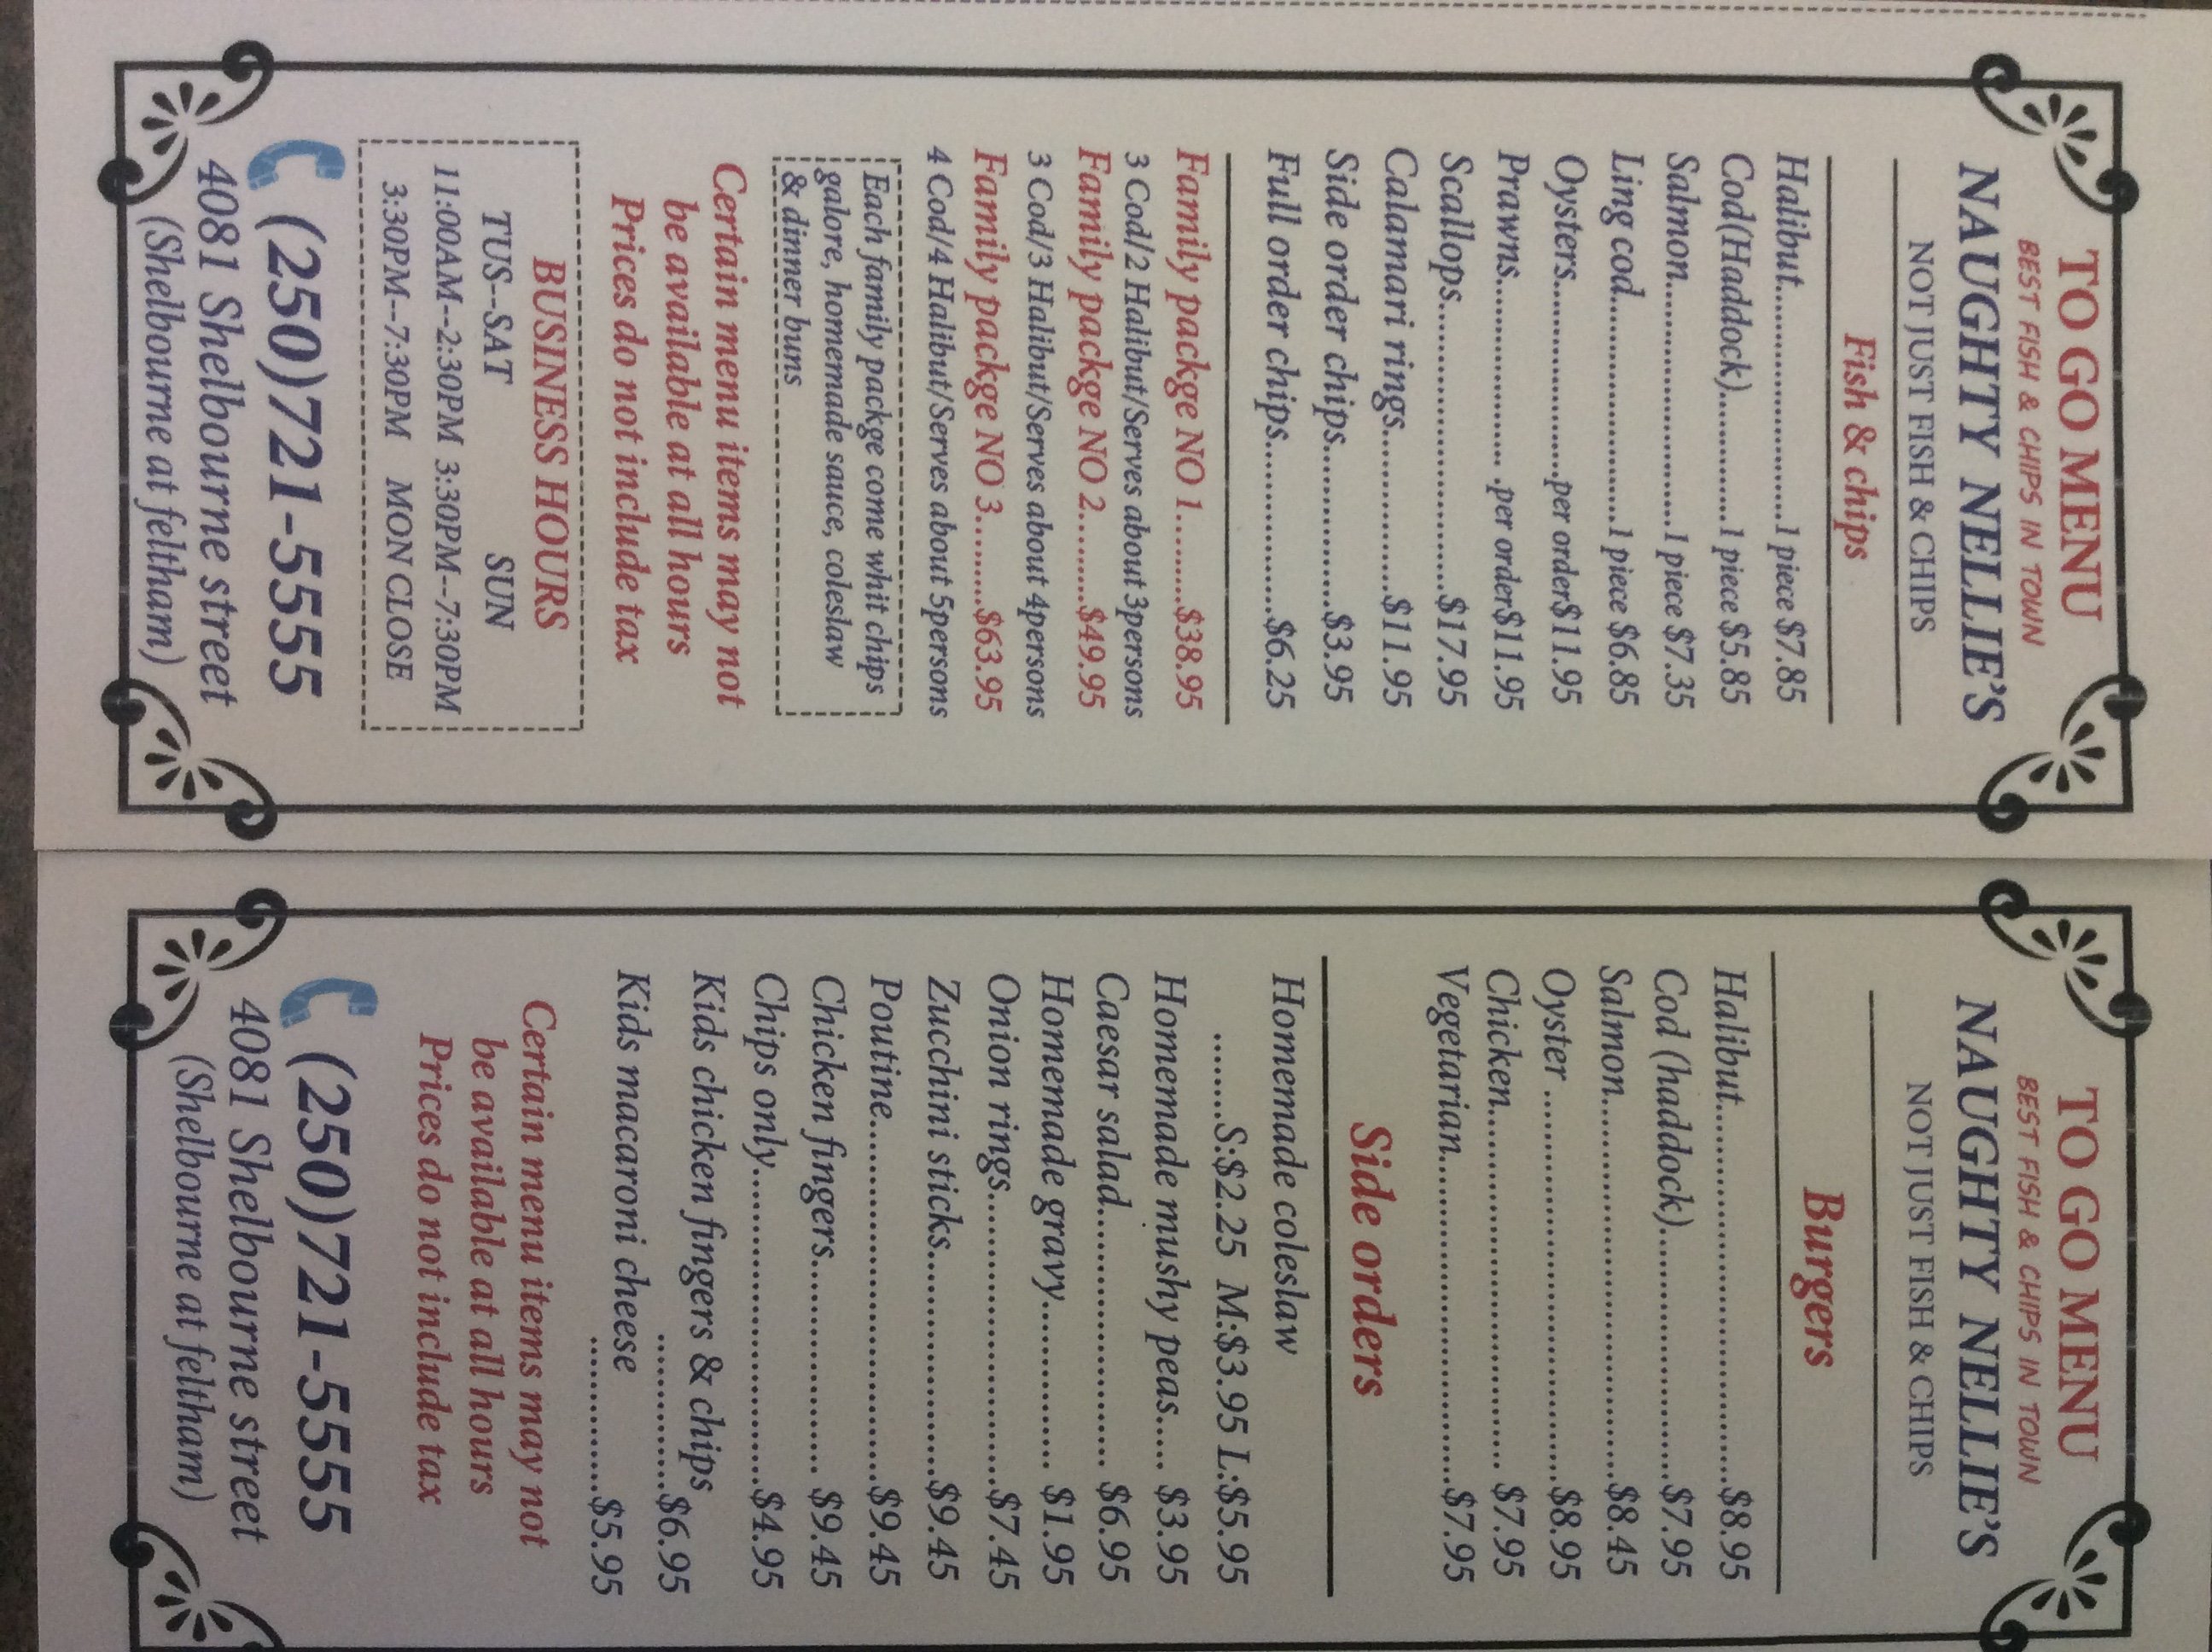 TO GO MENU
BEST FISH & CHIPS IN TOWN
NAUGHTY NELLIE'S
NOT JUST FISH & CHIPS
Fish & chips
Halibut....................1 piece $7.85
Cod(Haddock)............1 piece $5.85
Salmon....................1 piece $7.35
Ling cod..................1 piece $6.85
Oysters...............per order$11.95
Prawns................ .per order$11.95
Scallops.......................$17.95
Calamari rings..............$11.95
Side order chips.............$3.95
Full order chips..............$6.25
Family packge NO 1........$38.95
3 Cod/2 Halibut/Serves about 3persons
Family packge NO 2........$49.95
3 Cod/3 Halibut/Serves about 4persons
Family packge NO 3........$63.95
4 Cod/4 Halibut/Serves about 5persons
Each family packge come whit chips
galore, homemade sauce, coleslaw
& dinner buns
Certain menu items may not
be available at all hours
Prices do not include tax
BUSINESS HOURS
TUS--SAT SUN
11:00AM--2:30PM 3:30PM--7:30PM
3:30PM--7:30PM MON CLOSE
(250)721-5555
4081 Shelbourne street
(Shelbourne at feltham)
TO GO MENU
BEST FISH & CHIPS IN TOWN
NAUGHTY NELLIE'S
NOT JUST FISH & CHIPS
Burgers
Halibut...............................$8.95
Cod (haddock)....................$7.95
Salmon...............................$8.45
Oyster ...............................$8.95
Chicken............................. $7.95
Vegetarian..........................$7.95
Side orders
Homemade coleslaw
........S:$2.25 M:$3.95 L:$5.95
Homemade mushy peas..... $3.95
Caesar salad..................... $6.95
Homemade gravy.............. $1.95
Onion rings.......................$7.45
Zucchini sticks...................$9.45
Poutine..............................$9.45
Chicken fingers................. $9.45
Chips only.........................$4.95
Kids chicken fingers & chips
............$6.95
Kids macaroni cheese
............$5.95
Certain menu items may not
be available at all hours
Prices do not include tax
(250)721-5555
4081 Shelbourne street
(Shelbourne at feltham)